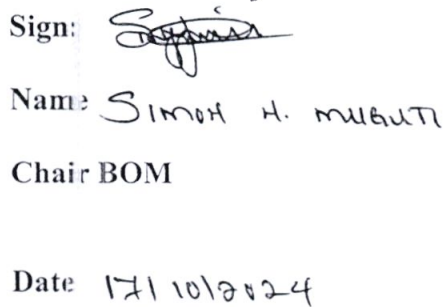 Sign:
Name SIMON H. MUGUTI
Chair BOM
Date 17/10/2024